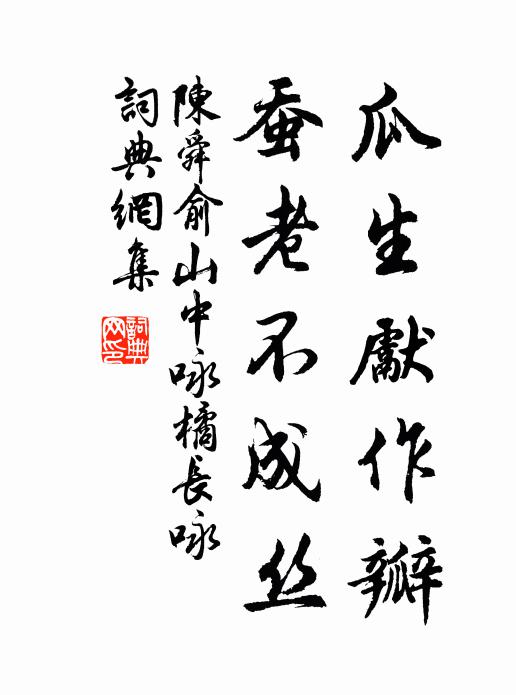 瓜生獻作瓣
蚕老不成丝
陳舜俞山中咏橘長咏
詞典網集
詞典网印